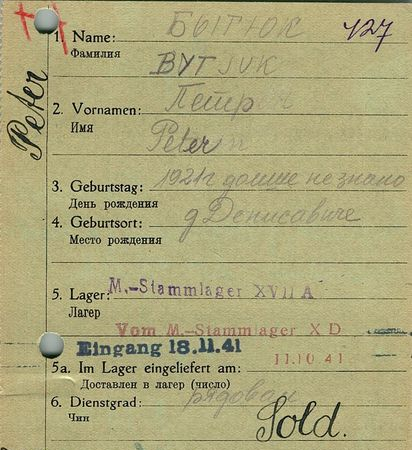 127
1. Name: БЫТЮК
Фамилия
BYTJUK
Peter
2. Vornamen: Петр
Имя
Peter
3. Geburtstag: 1921г дальше не знаю
День рождения
4. Geburtsort: д Денисавиче
Место рождения
5. Lager: M.-Stammlager XVII A
Лагер
Vom M.-Stammlager X D
Eingang 18.11.41
11.10.41
5a. Im Lager eingeliefert am:
Доставлен в лагер (число)
6. Dienstgrad: рядовал
Чин
Sold.